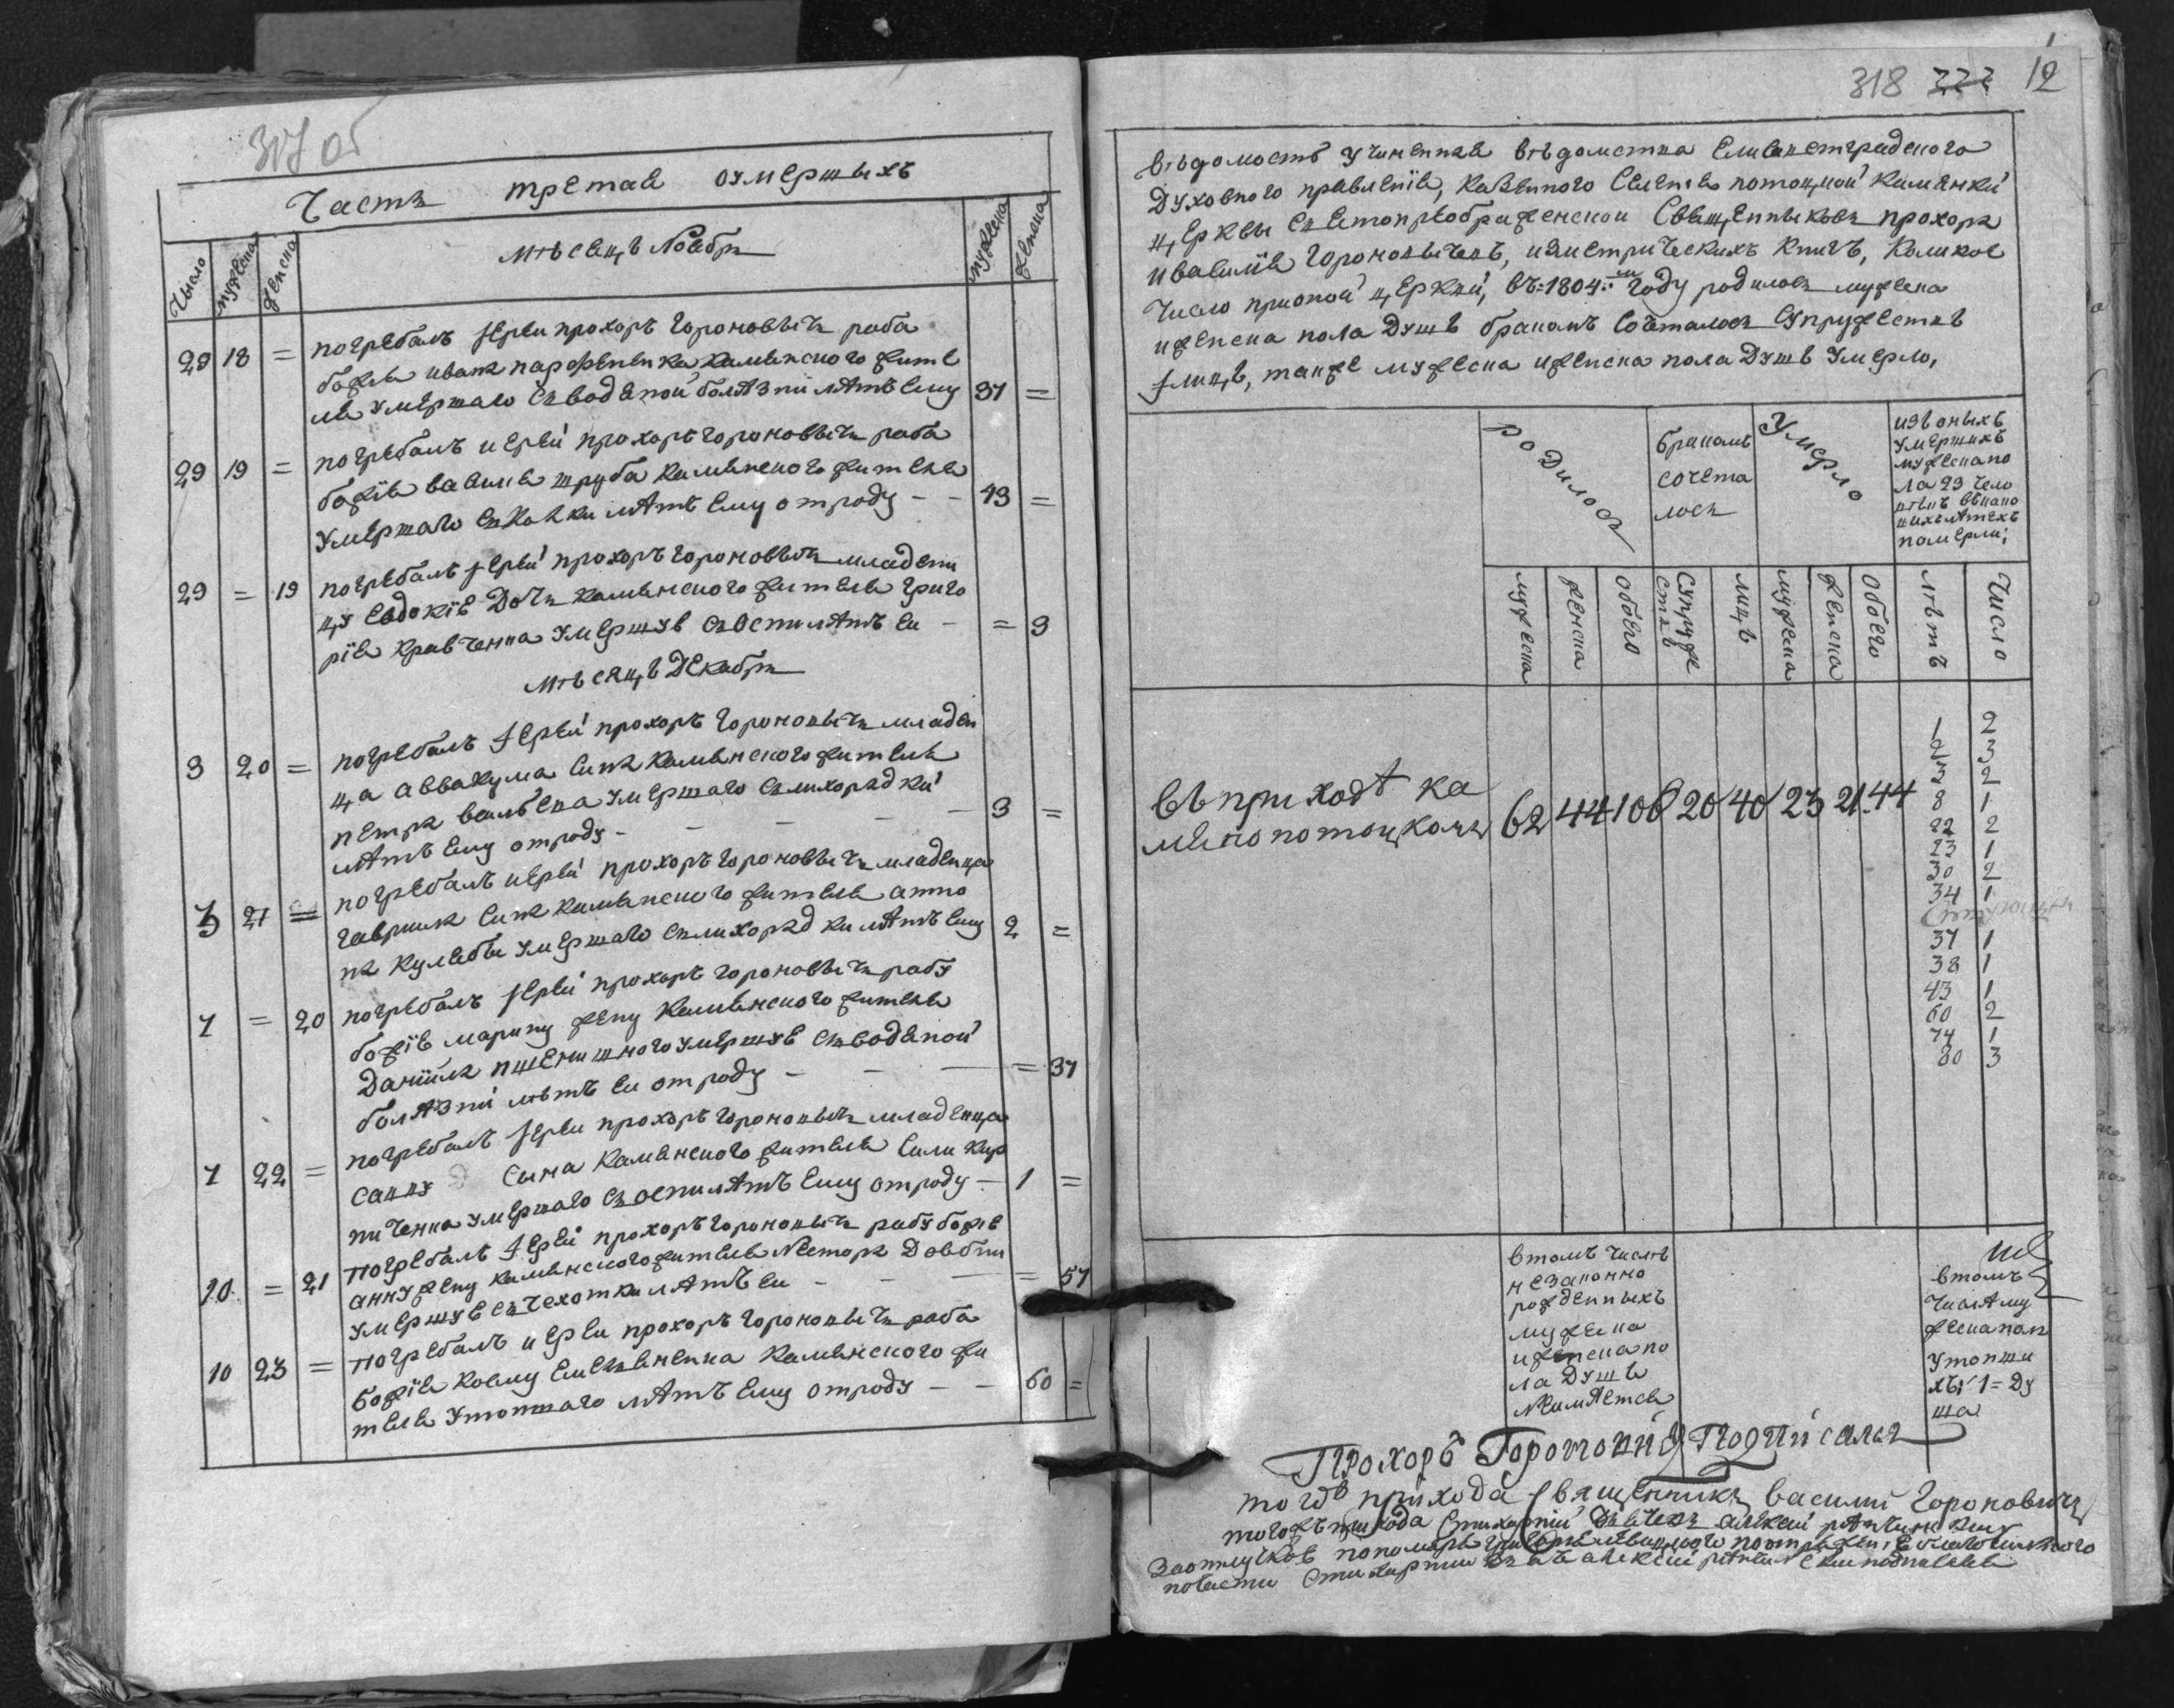 317 об
Часть третая оумершыхъ
Число мужеска женска
мѣсецъ Ноебря
мужеска женска
29 18 = погребалъ іереи прохоръ Гороновѣчъ раба
божіе ивана парфененка каменского жите
ле умершаго съ воденой болѣзни лѣтъ ему 37 =
29 19 = погребалъ иерей прохоръ гороновѣчъ раба
божіе василе труба каменского жителе
умершаго лѣтъ ему отроду - - 43 =
29 = 19 погребалъ іерей прохоръ гороновѣчъ младени
цу евдокіе дочь каменского жителе григо
ріе кравченка умершуе съ оспи лѣтъ еи - = 3
мѣсяцъ Декабрь
3 20 = погребалъ іерей прохоръ гороновичъ младен
ца аввакума сина каменского жителе
петра умершаго съ лихорадки
лѣтъ ему отроду - - - - - 3 =
7 21 = погребалъ иерей прохоръ гороновѣчъ младенца
гаврила сина каменского жителе анто
на кулебы умершаго съ лихорадки лѣтъ ему 2 =
7 = 20 погребалъ іерей прохоръ гороновѣчъ рабу
божіе марину жену каменского жителе
даніила пшенишного умершуе съ воденой
болѣзни лѣтъ еи отроду - - - = 37
7 22 = погребалъ іереи прохоръ гороновичъ младенца
сына каменского жителе сили кир
пиченка умершаго съ оспи лѣтъ ему отроду - 1 =
10 = 21 погребалъ іерей прохоръ гороновичъ рабу божіе
анну жену каменского жителе Нестора Довбни
умершуе съ чехотки лѣтъ еи - - - = 57
10 23 = погребалъ иереи прохоръ гороновичъ раба
божіе козму емелененка каменского жи
теле утопшаго лѣтъ ему отроду - - 60 =
318 12
вѣдомость учиненная вѣдомства Елисаветградского
Духовного правленіе, казенного Селеніе потоцкой каменки
церквы Светопреображенской Свещенныковъ прохора
и василіе Гороновичевъ, изметрическихъ книгъ, коликое
число прионой церкви, въ 1804мъ году родилось мужеска
и женска пола душъ бракомъ сочеталось супружествъ
и лицъ, также мужеска и женска пола душъ умерло,
родилось
бракомъ
сочета
лось
умерло
изъ оныхъ
умершихъ
мужеска по
ла 23 чело
вѣкъ въкако
вихъ лѣтехъ
померли;
мужеска женска обоего супруже
ствъ лицъ мужеска женска обоего лѣтъ Число
въ приходѣ ка
менопотоцкомъ 62 44 106 20 40 23 21 44
1 2
2 3
3 2
8 1
22 2
23 1
30 2
34 1
37 1
38 1
43 1
60 2
74 1
80 3
втомъ числѣ
незаконно
рожденныхъ
мужеска
и женска по
ла душъ
неимѣется
втомъ
числѣ му
жеска пола
утопши
хъ 1 = ду
ша
Прохоръ Гороновичъ Подписалъ
тогоъ прихода Священникъ василий Гороновичъ
тогожъ прихода стихарній дьячекъ алексѣй